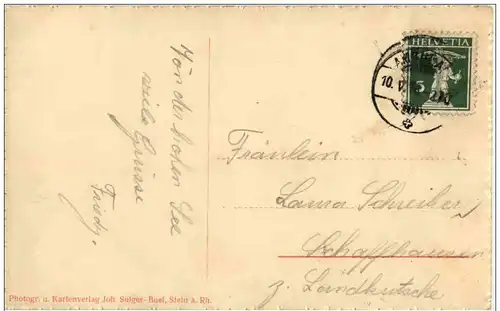 HELVETIA
5
10. V.
Von der hohen See
viele Grüsse
Friedy.
Fräulein
Laura Schreiber
Schaffhausen
z. Landkutsche
Photogr. u. Kartenverlag Joh Sulger-Buel, Stein a. Rh.